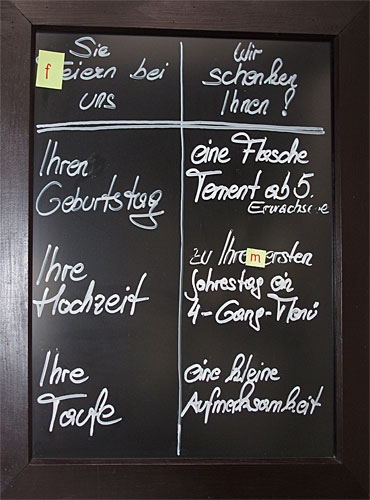 Sie
feiern bei
uns
Wir
schenken
Ihnen ?
Ihren
Geburtstag
eine Flasche
Tement ab 5.
Erwachsene
Ihre
Hochzeit
zu Ihrem ersten
Jahrestag ein
4-Gang-Menü
Ihre
Taufe
eine kleine
Aufmerksamkeit